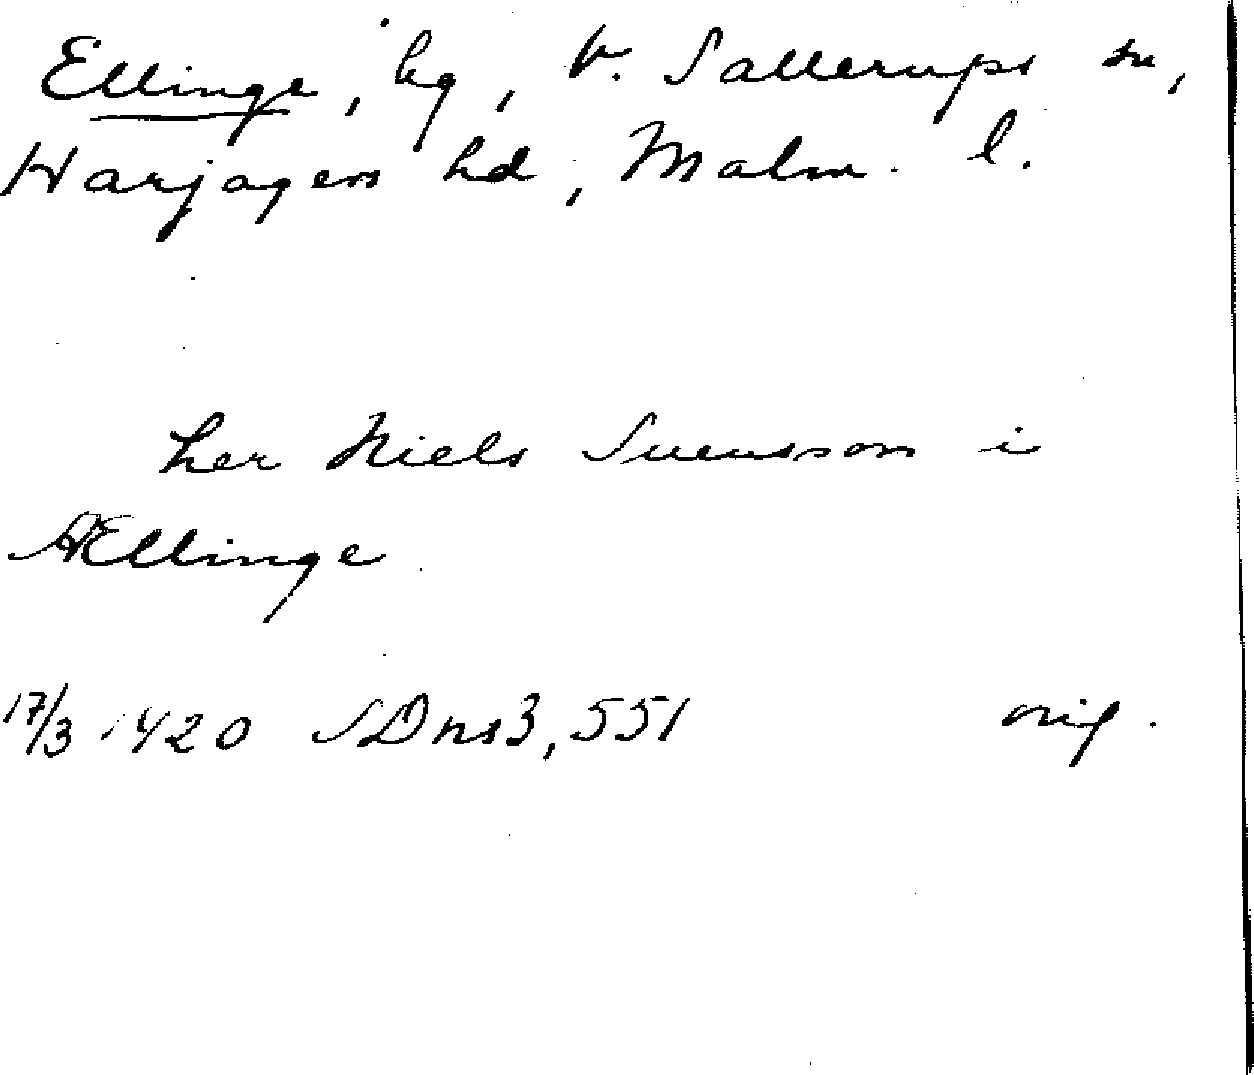 Ellinge, hg, V. Sallerups sn,
Harjagers hd, Malm. l.
her Niels Suensson i
Ællinge
17/3 1420 SDns3, 551 orig.